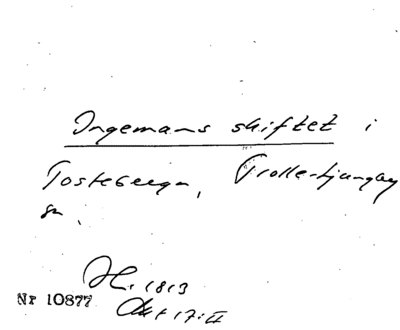 Ingemans skiftet i
Tosteberga, Trolle-Ljungby
sn.
H. 1813
Nr 10877
Akt 17:II